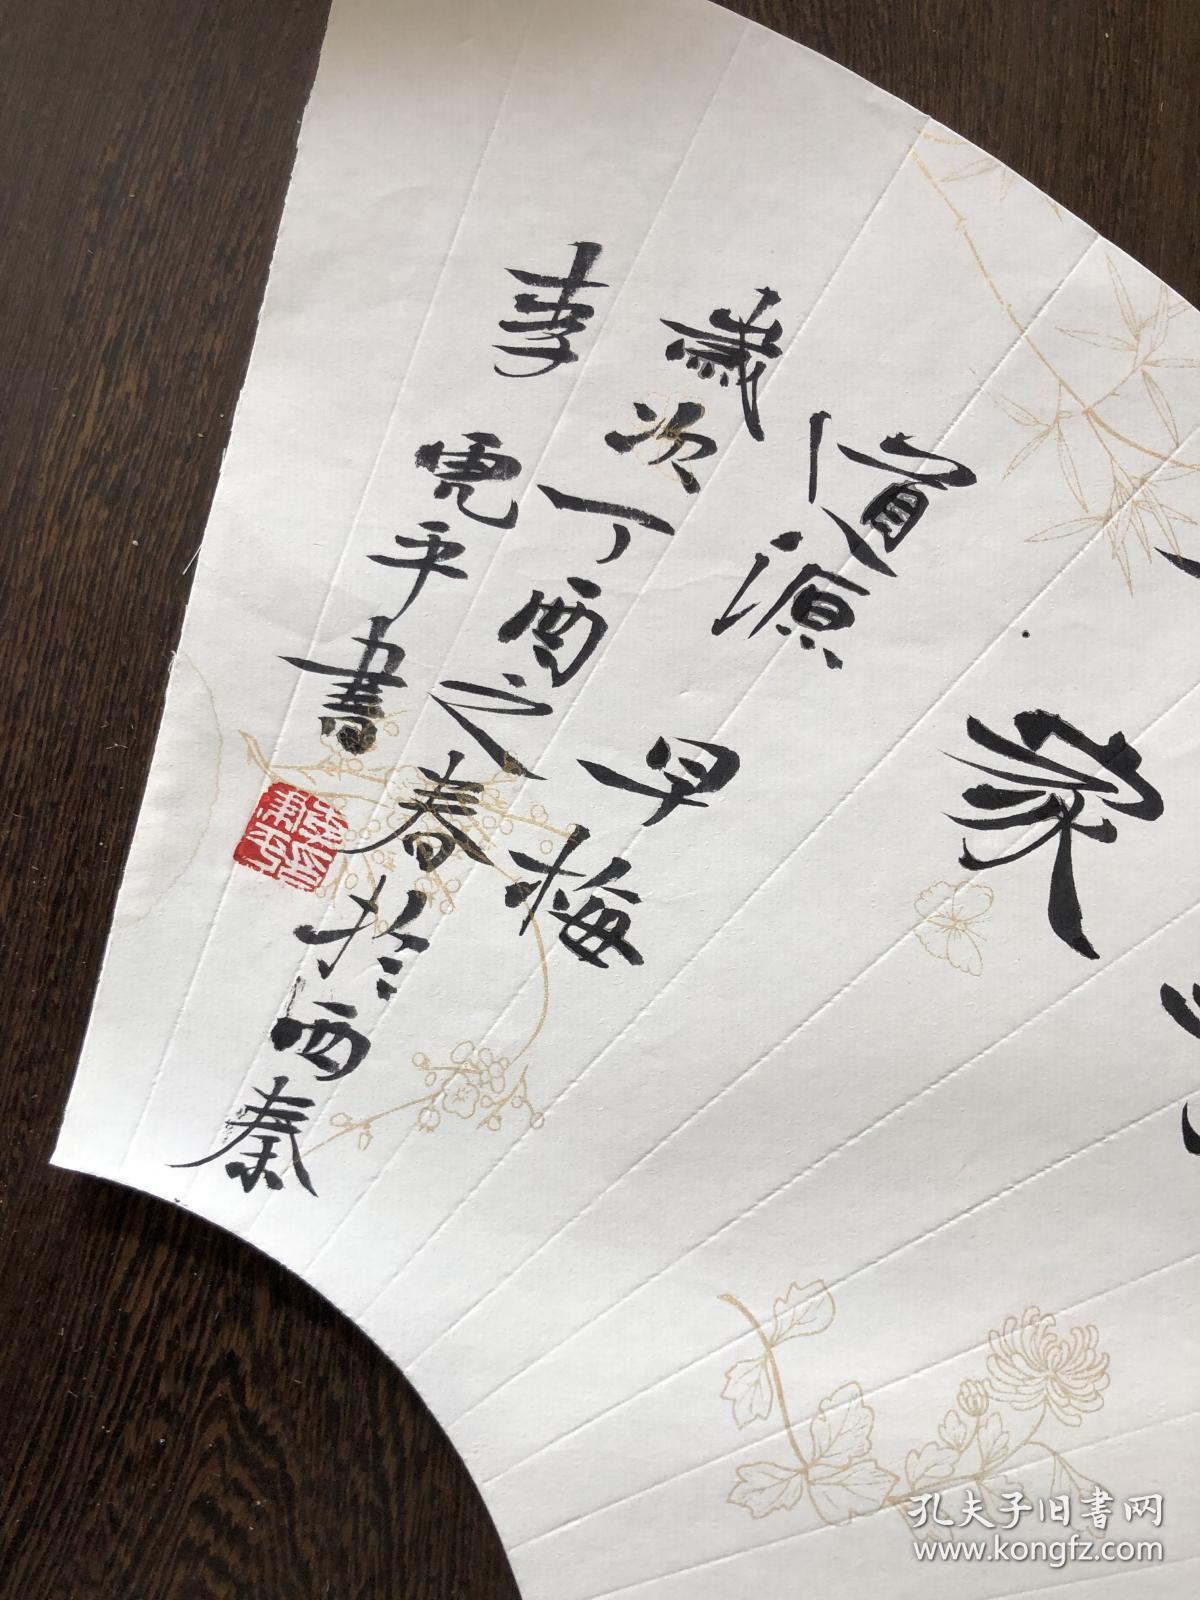 家
道源 早梅
歲次丁酉之春於西秦
平書
孔夫子旧書网
www.kongfz.com